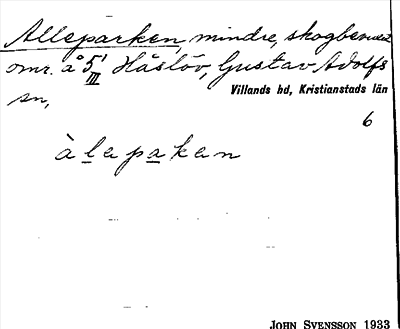 Alleparken, mindre, skogbevuxet
omr. å 5¹ Håslöv, Gustav Adolfs
III
sn,
Villands hd, Kristianstads län
6
àlepakan
JOHN SVENSSON 1933